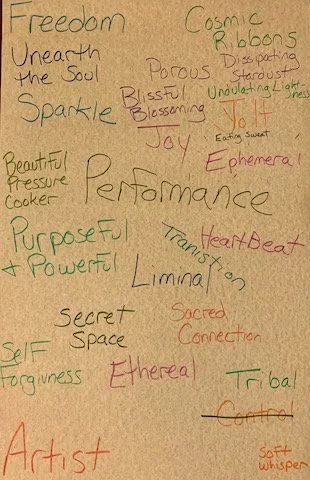 Freedom
Cosmic
Ribbons
Unearth
the Soul
Dissipating
Stardust
Porous
Undulating Light-
ness
Blissful
Blossoming
Sparkle
Jolt
Eating Sweat
Joy
Ephemeral
Beautiful
Pressure
Cooker
Performance
Purposeful
+ Powerful
Tranistion
HeartBeat
Liminal
Secret
Space
Sacred
Connection
Self
Forgivness
Ethereal
Tribal
Control
Artist
Soft
whisper